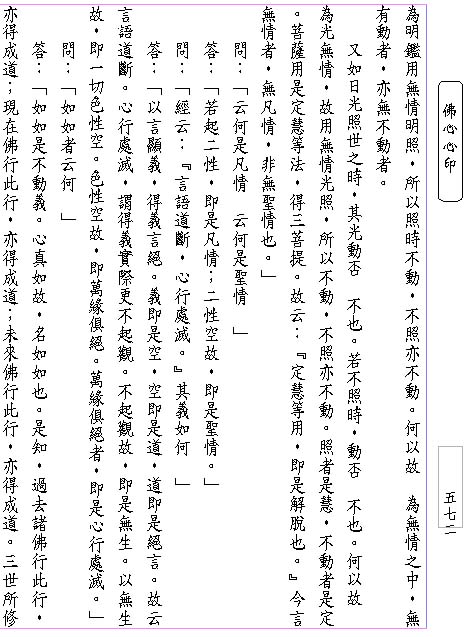 佛心心印
為明鑑用無情明照，所以照時不動，不照亦不動。何以故　為無情之中，無
有動者，亦無不動者。
又如日光照世之時，其光動否　不也。若不照時，動否　不也。何以故
為光無情，故用無情光照，所以不動，不照亦不動。照者是慧，不動者是定
。菩薩用是定慧等法，得三菩提。故云：『定慧等用，即是解脫也。』今言
無情者，無凡情，非無聖情也。」
問：「云何是凡情　云何是聖情　」
答：「若起二性，即是凡情；二性空故，即是聖情。」
問：「經云：『言語道斷，心行處滅。』其義如何　」
答：「以言顯義，得義言絕。義即是空，空即是道，道即是絕言。故云
言語道斷。心行處滅，謂得義實際更不起觀。不起觀故，即是無生。以無生
故，即一切色性空。色性空故，即萬緣俱絕。萬緣俱絕者，即是心行處滅。」
問：「如如者云何　」
答：「如如是不動義。心真如故，名如如也。是知，過去諸佛行此行，
亦得成道；現在佛行此行，亦得成道；未來佛行此行，亦得成道。三世所修
五七二